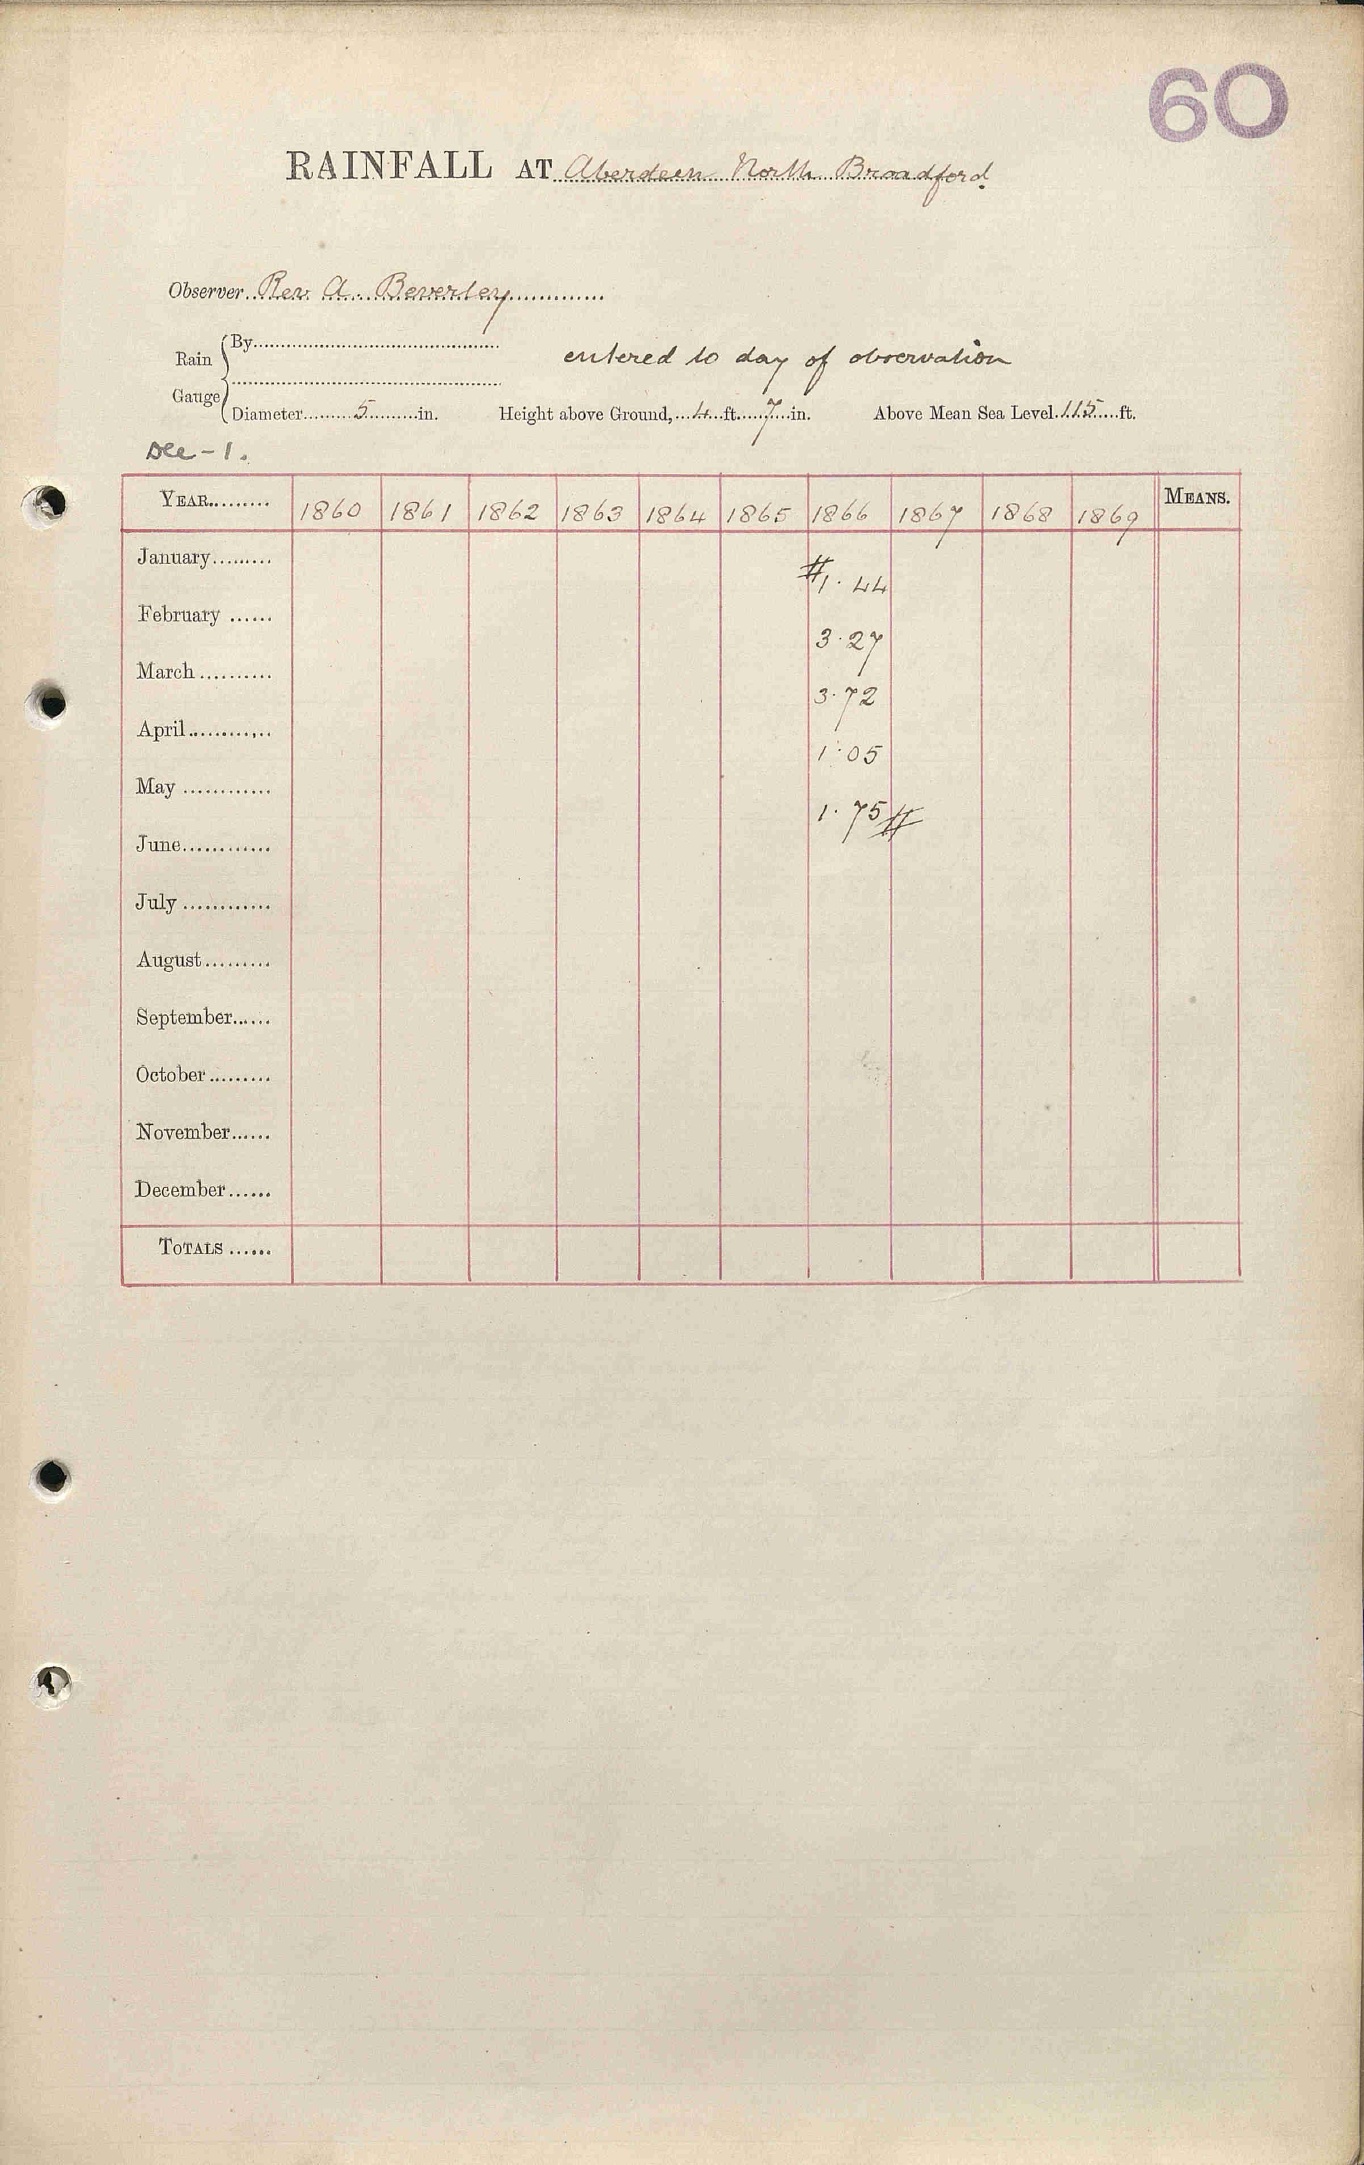 60
RAINFALL AT Aberdeen North Broadford
Observer Rev A. Beverley
Rain Gauge
By
entered to day of observation
Diameter 5 in. Height above Ground, 4 ft. 7 in. Above Mean Sea Level 115 ft.
Dec - 1.
YEAR 1860 1861 1862 1863 1864 1865 1866 1867 1868 1869 MEANS.
January
# 1.44
February
3.27
March
3.72
April
1.05
May
1.75 #
June
July
August
September
October
November
December
TOTALS